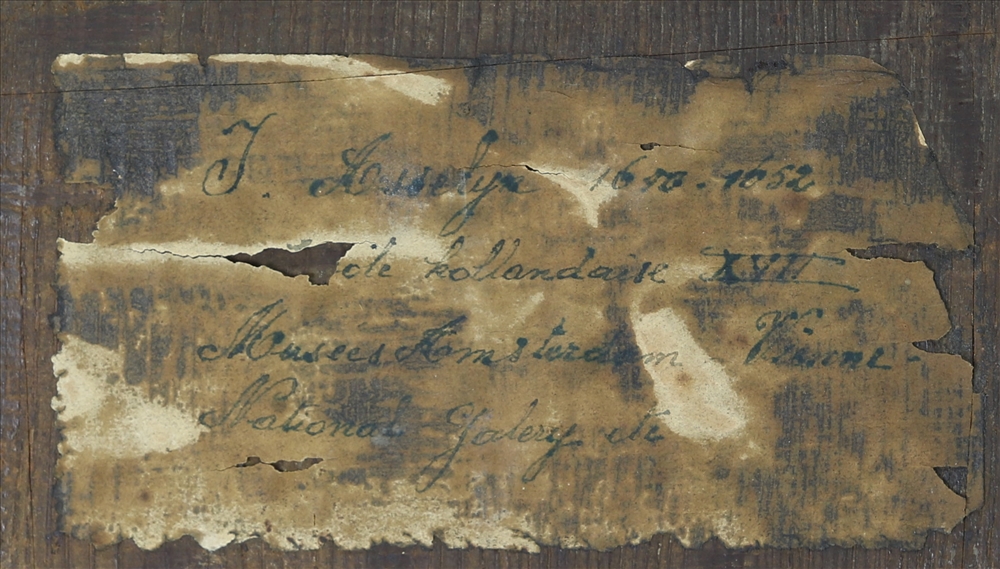 J. Asselyn 1610-1652
ole hollandaise XVII
Musees Amsterdam Vienne -
National Galery etc